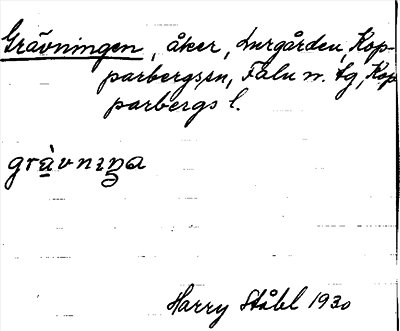 Grävningen, åker, Lurgården, Kop-
parbergs sn, Falu n. tg, Kop
parbergs l.
Harry Ståbl 1930